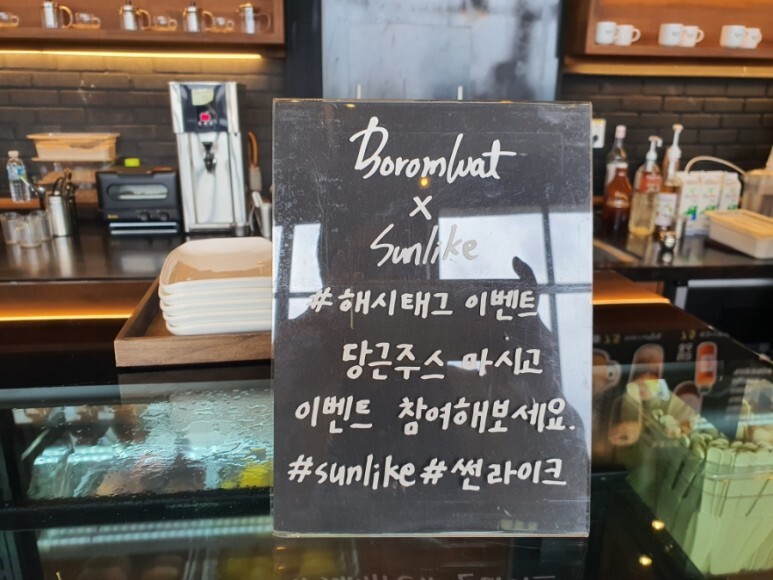 Boromwat
x
Sunlike
#해시태그 이벤트
당근주스 마시고
이벤트 참여해보세요.
#sunlike#썬라이크